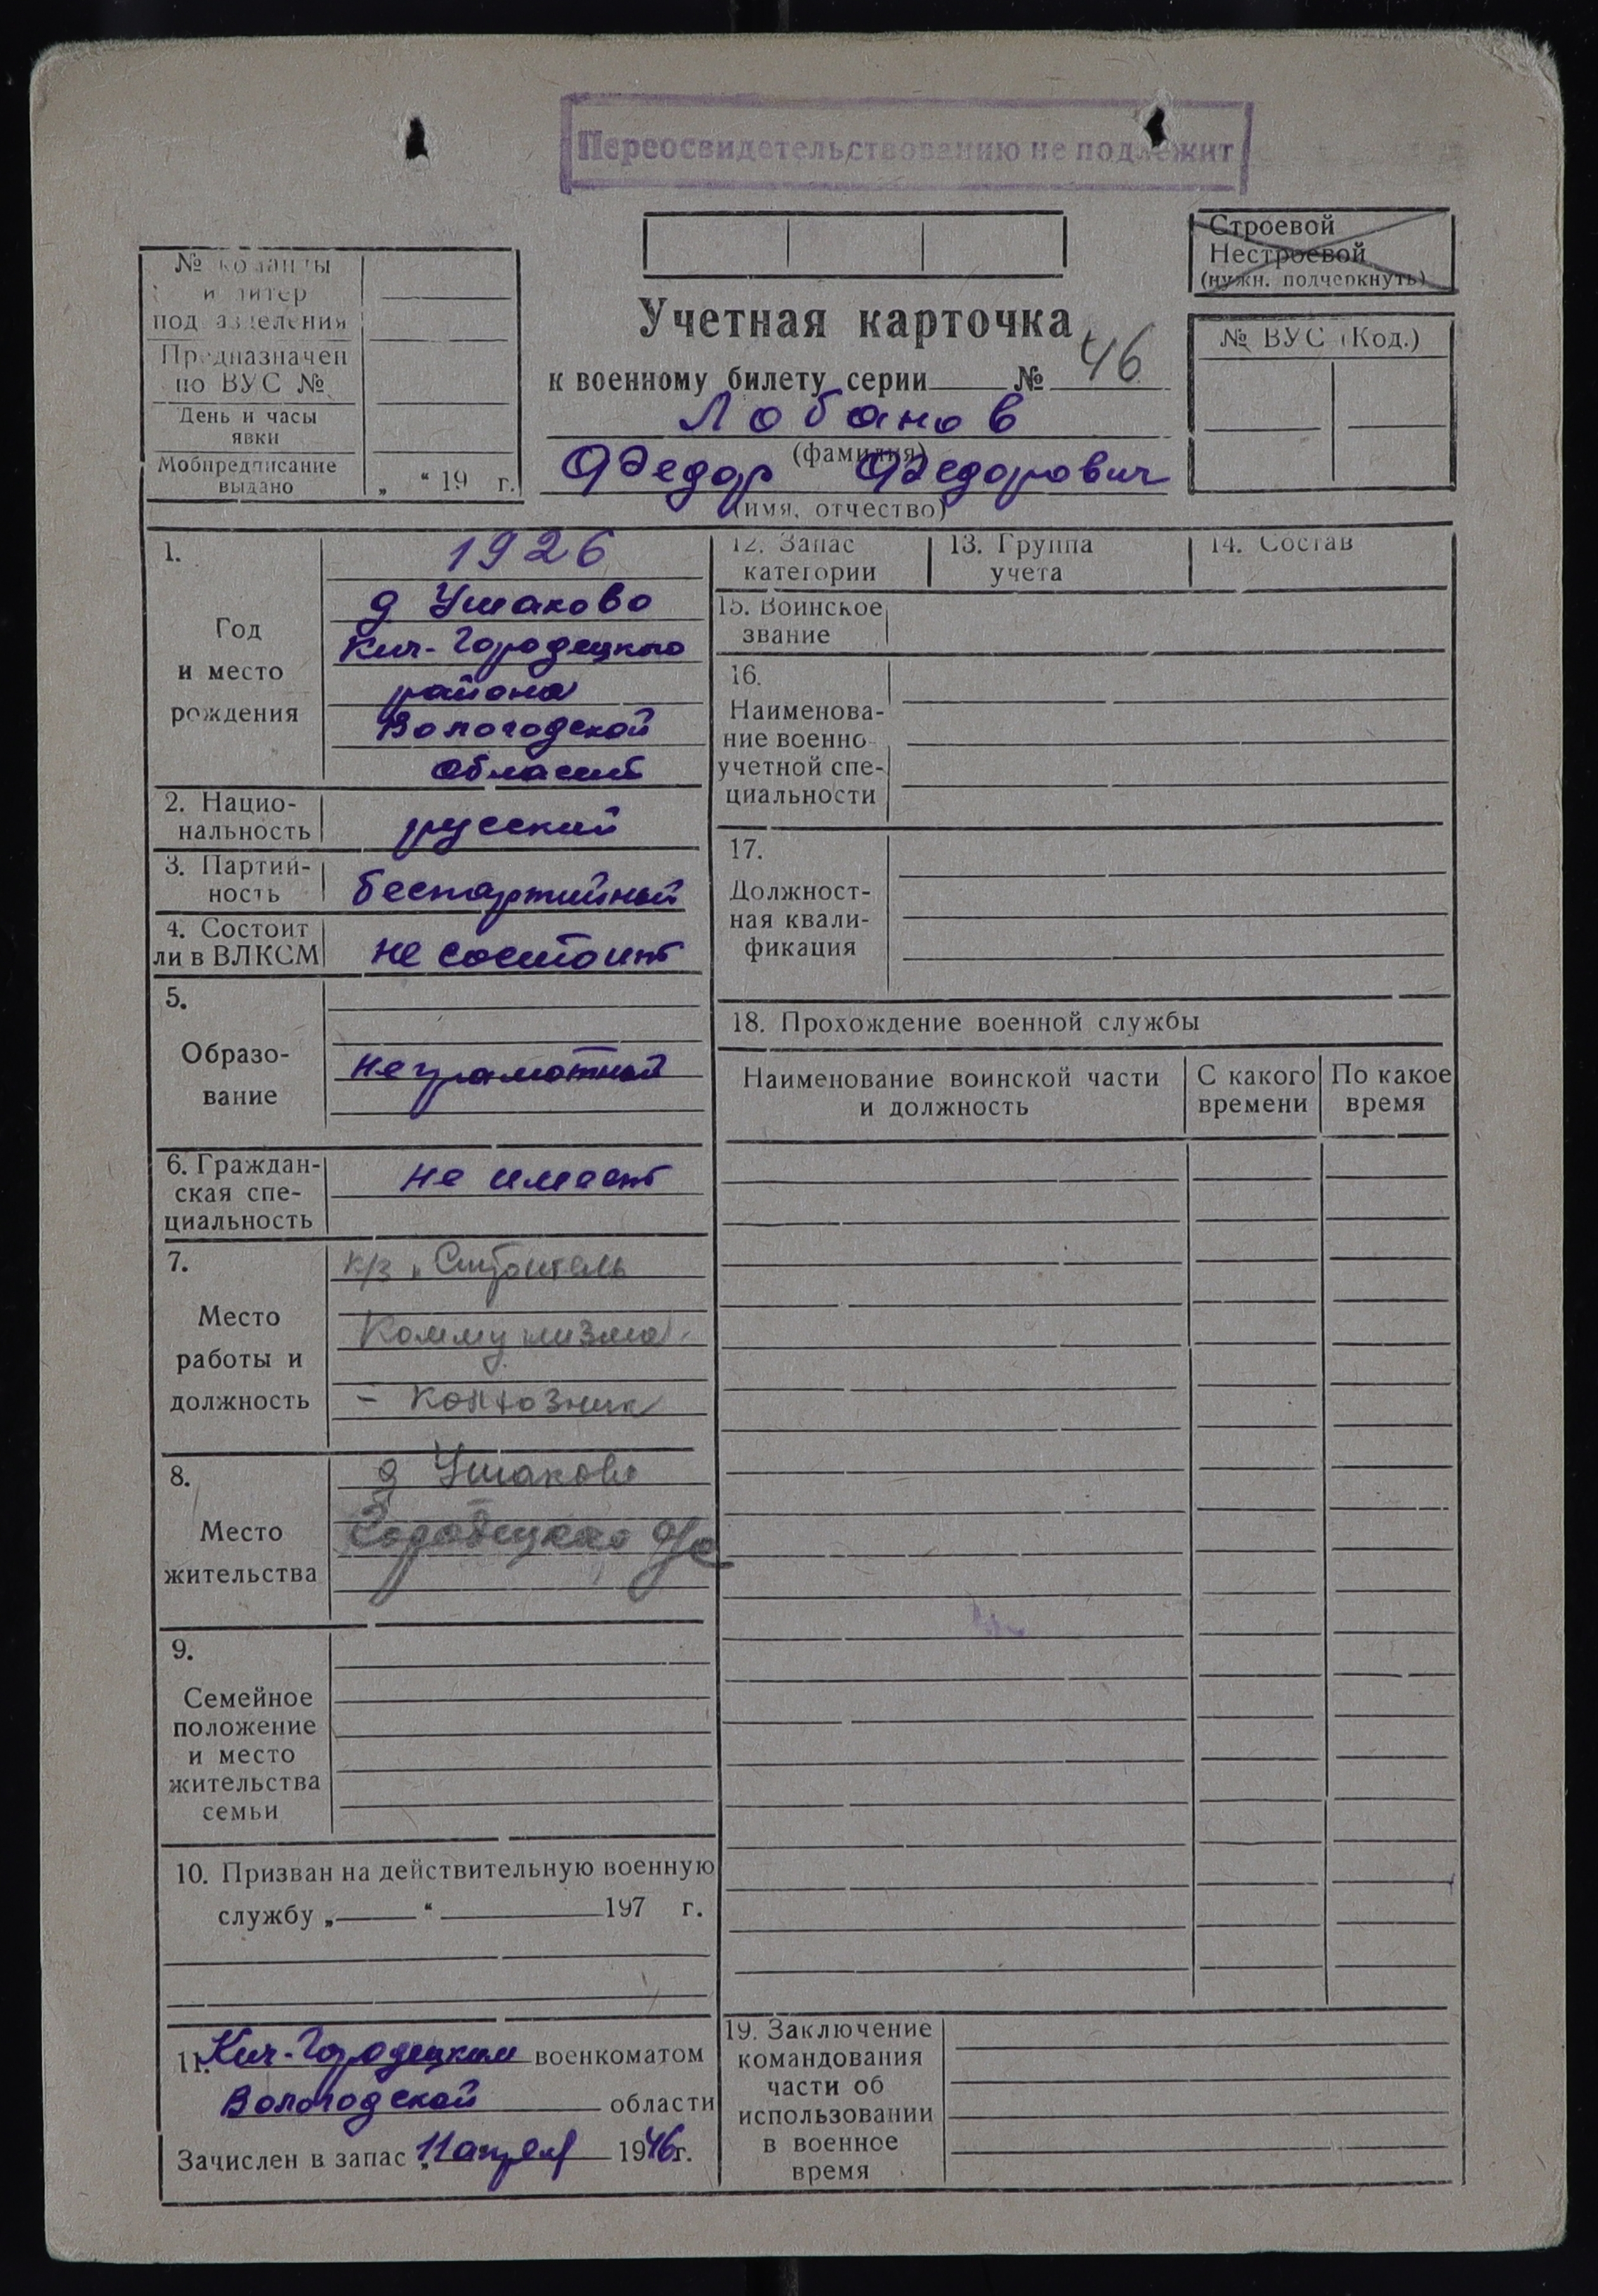 Переосвидетельствованию не подлежит
Строевой
Нестроевой
(нужн. подчеркнуть)
№ команды
и литер
подразделения
Предназначен
по ВУС №
День и часы
явки
Мобпредписание
выдано
„ “ 19 г.
Учетная карточка
к военному билету серии № 46
Лобанов
(фамилия)
Федор Федорович
(имя, отчество)
№ ВУС (Код.)
1.
Год
и место
рождения
1926
д Ушаково
Кич-Городецкого
района
Вологодской
области
2. Нацио-
нальность
русский
3. Партий-
ность
беспартийный
4. Состоит
ли в ВЛКСМ
не состоит
5.
Образо-
вание
неграмотный
6. Граждан-
ская спе-
циальность
не имеет
7.
Место
работы и
должность
к/з „Строитель
Коммунизма"
- колхозник
8.
Место
жительства
д Ушаково
Городецкого с/с
9.
Семейное
положение
и место
жительства
семьи
10. Призван на действительную военную
службу „ “ 197 г.
11. Кич-Городецким военкоматом
Вологодской области
Зачислен в запас „11 апреля 1946г.
12. Запас
категории
13. Группа
учета
14. Состав
15. Воинское
звание
16.
Наименова-
ние военно
учетной спе-
циальности
17.
Должност-
ная квали-
фикация
18. Прохождение военной службы
Наименование воинской части
и должность
С какого
времени
По какое
время
19. Заключение
командования
части об
использовании
в военное
время